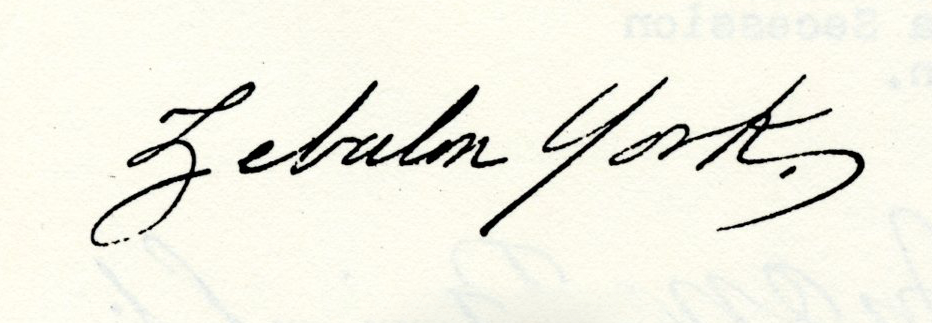 Zebulon York.
a Secession
n.